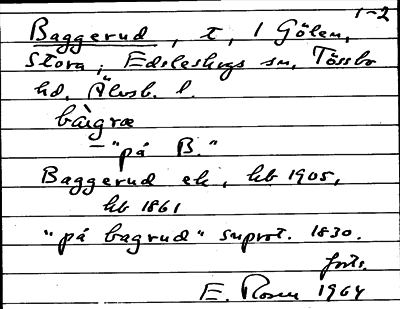 1-2
Baggerud, t, 1 Gölen,
Stora, Edsleskogs sn, Tössbo
hd, Älvsb. l.
bàgræ
– "på B."
Baggerud ek, hb 1905,
hb 1861
"på bagrud" suprot. 1830.
forts.
E. Rosen 1964